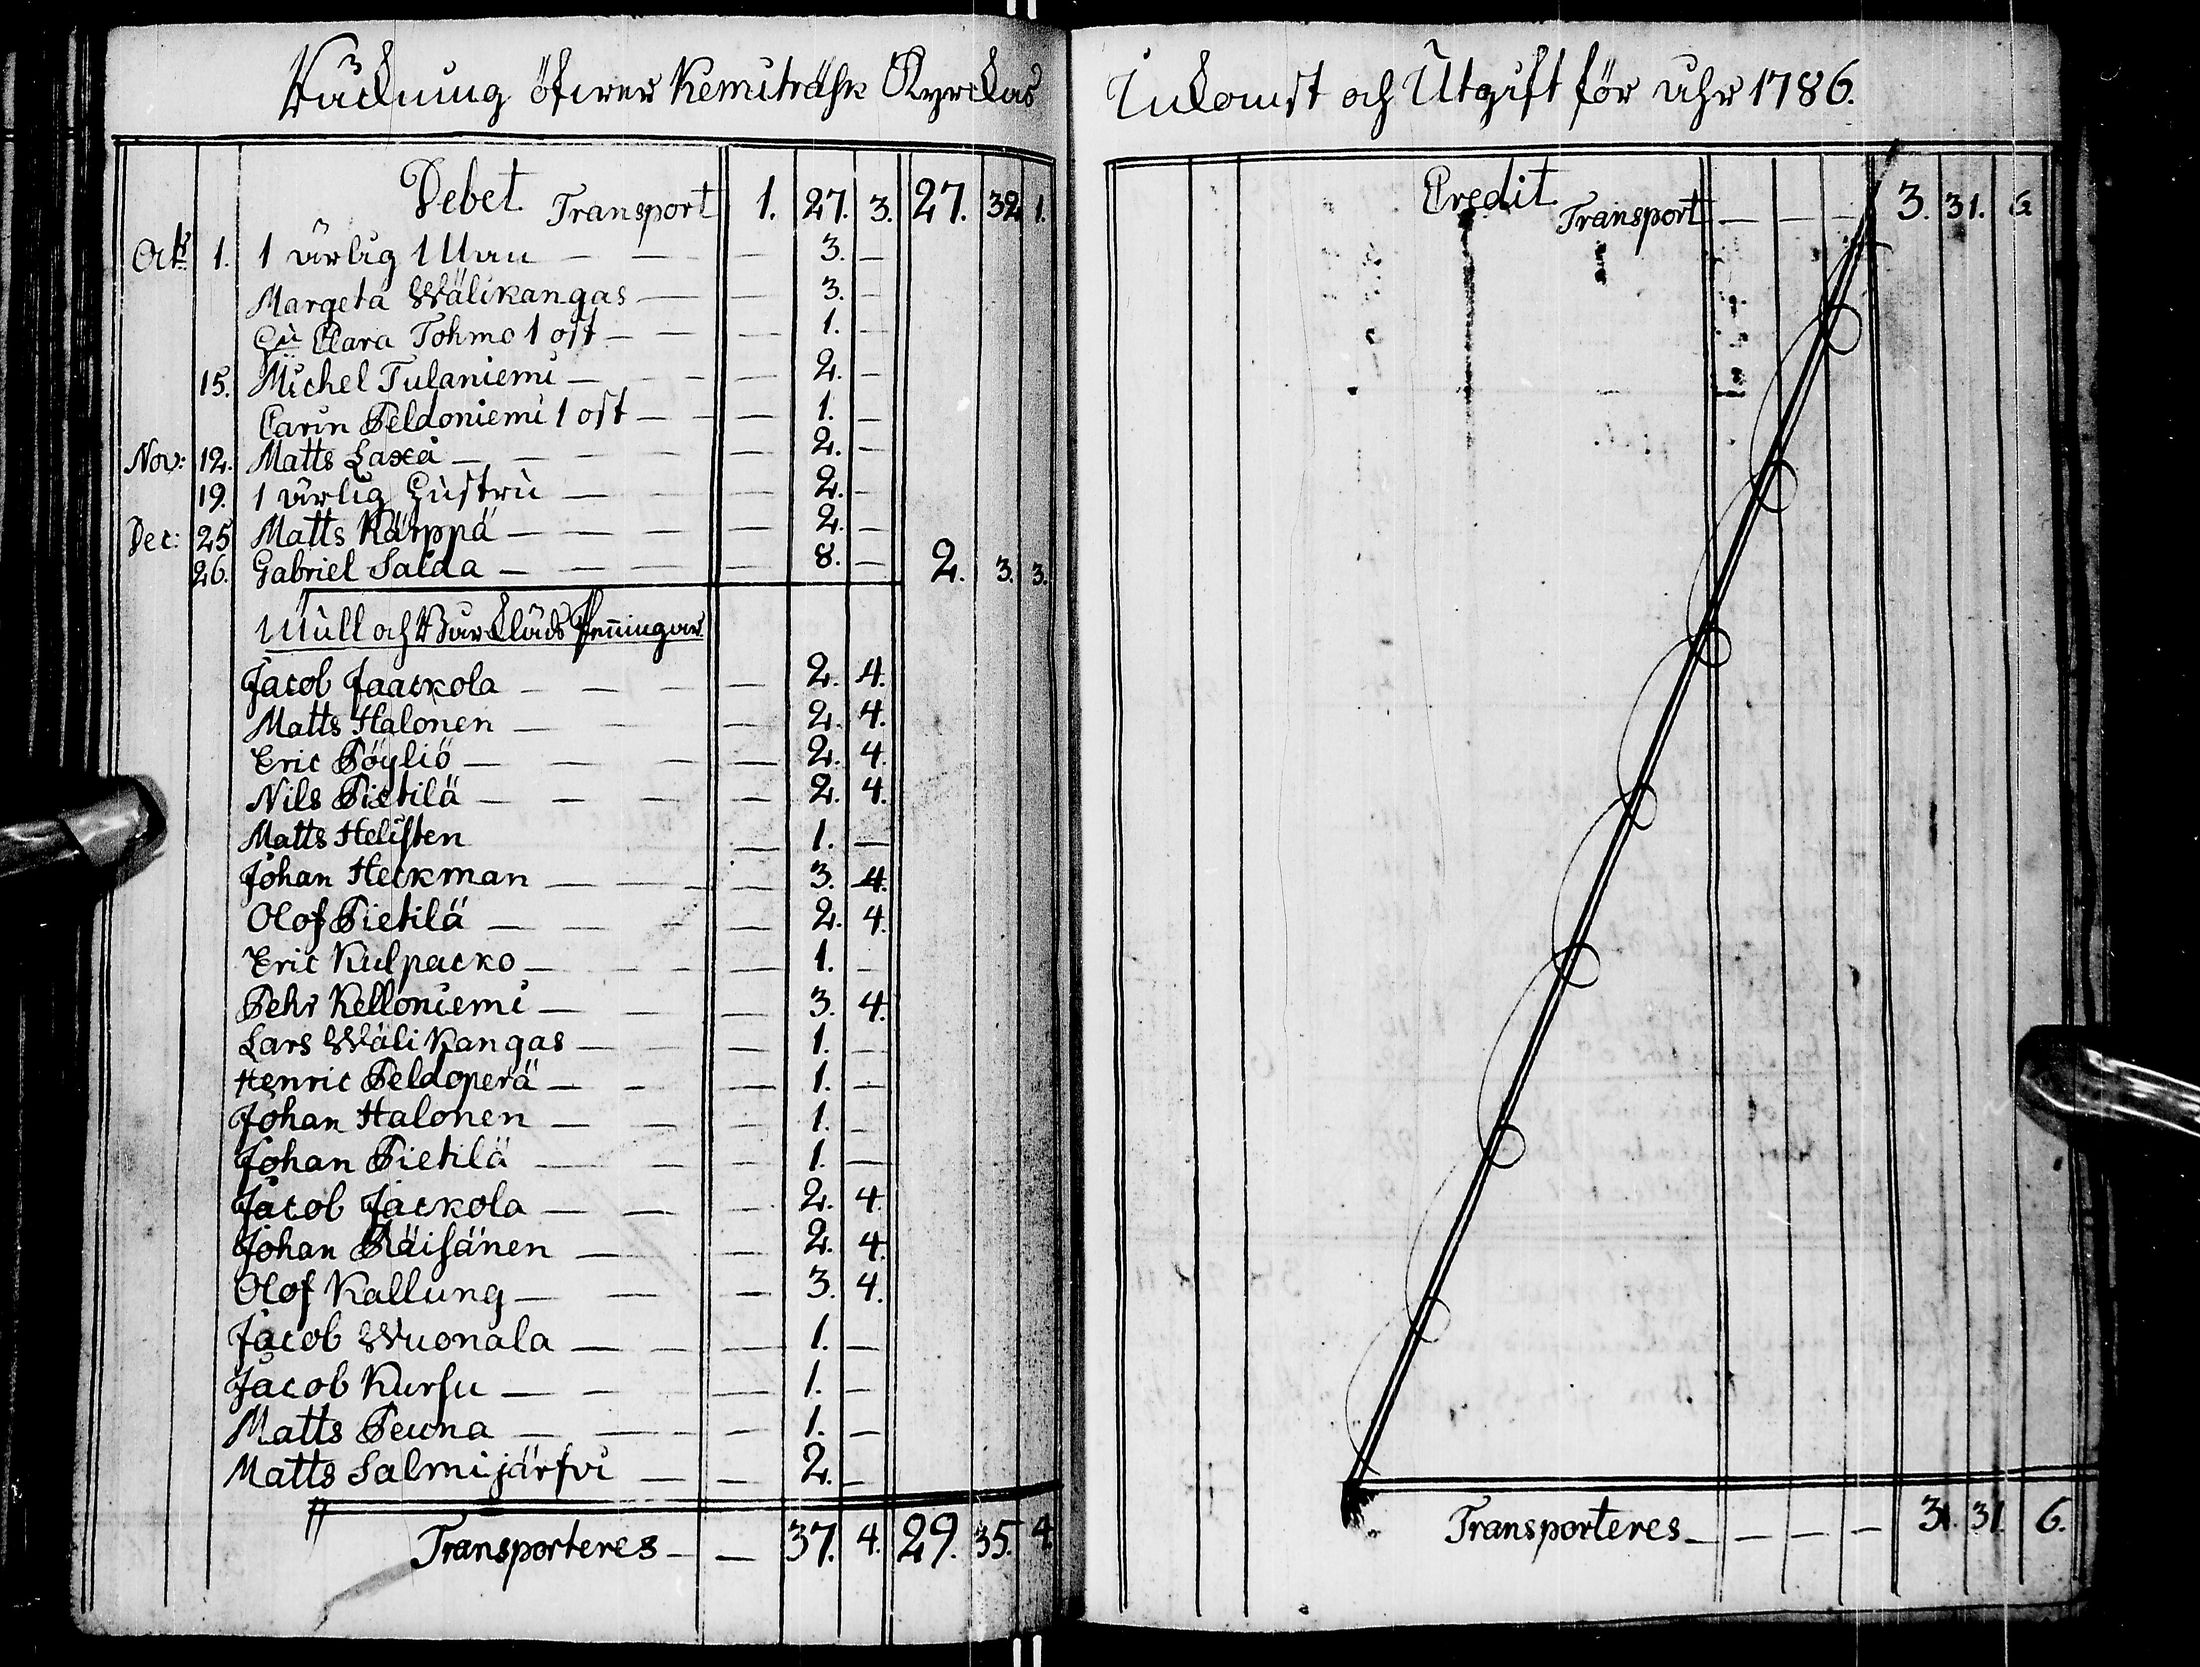 Räckning öfwer Kemiträsk Kyrckas
Debet Transport 1. 27. 3. 27. 32. 1.
Octr 1. 1 ärlig Man — — — 3. —
Margeta Wälikangas — — 3. —
Hu Clara Tohmo 1 ost — — — 1. —
15. Michel Tulaniemi — — — — 2. —
Carin Peldoniemi 1 ost — — — 1. —
Nov: 12. Matts Laxa — — — — — 2. —
19. 1 ärlig Hustru — — — — 2. —
Dec: 25 Matts Kärppä — — — — 2. —
26. Gabriel Salda — — — — — 8. — 2. 3. 3.
Mull och Bårkläds Penningar
Jacob Jaackola — — — — 2. 4.
Matts Halonen — — — — 2. 4.
Eric Pöyliö — — — — — 2. 4.
Nils Pietilä — — — — 2. 4.
Matts Helisten — 1. —
Johan Heckman — — — — 3. 4.
Olof Pietilä — — — — 2. 4.
Eric Kulpacko — — — — 1. —
Pehr Kelloniemi — — — — 3. 4.
Lars Wäli Kangas — — — — 1. —
Henric Peldoperä — — — 1. —
Johan Halonen — — — — 1. —
Johan Pietilä — — — — 1. —
Jacob Jackola — — — 2. 4.
Johan Räisänen — — — 2. 4.
Olof Kallung — — — — 3. 4.
Jacob Wuonala — — — — 1. —
Jacob Kursu — — — — 1. —
Matts Peuna — — — — 1. —
Matts Salmijärfvi — — 2. —
Transporteres — — 37. 4. 29. 35. 4.
Inkomst och Utgift för åhr 1786.
Credit Transport — — — 3. 31. 6
Transporteres — — — — 31. 6.